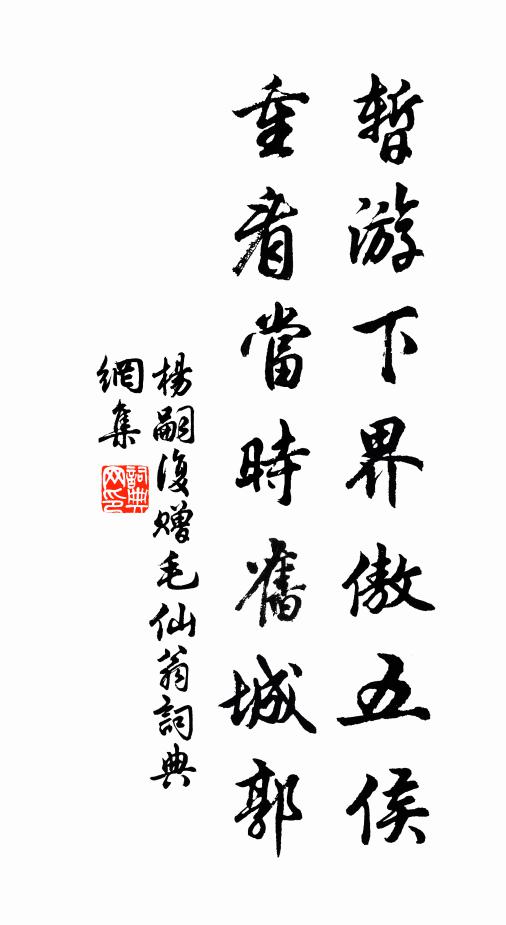 暫游下界傲五侯
重看當時舊城郭
楊嗣復贈毛仙翁詞典
網集
詞典網印